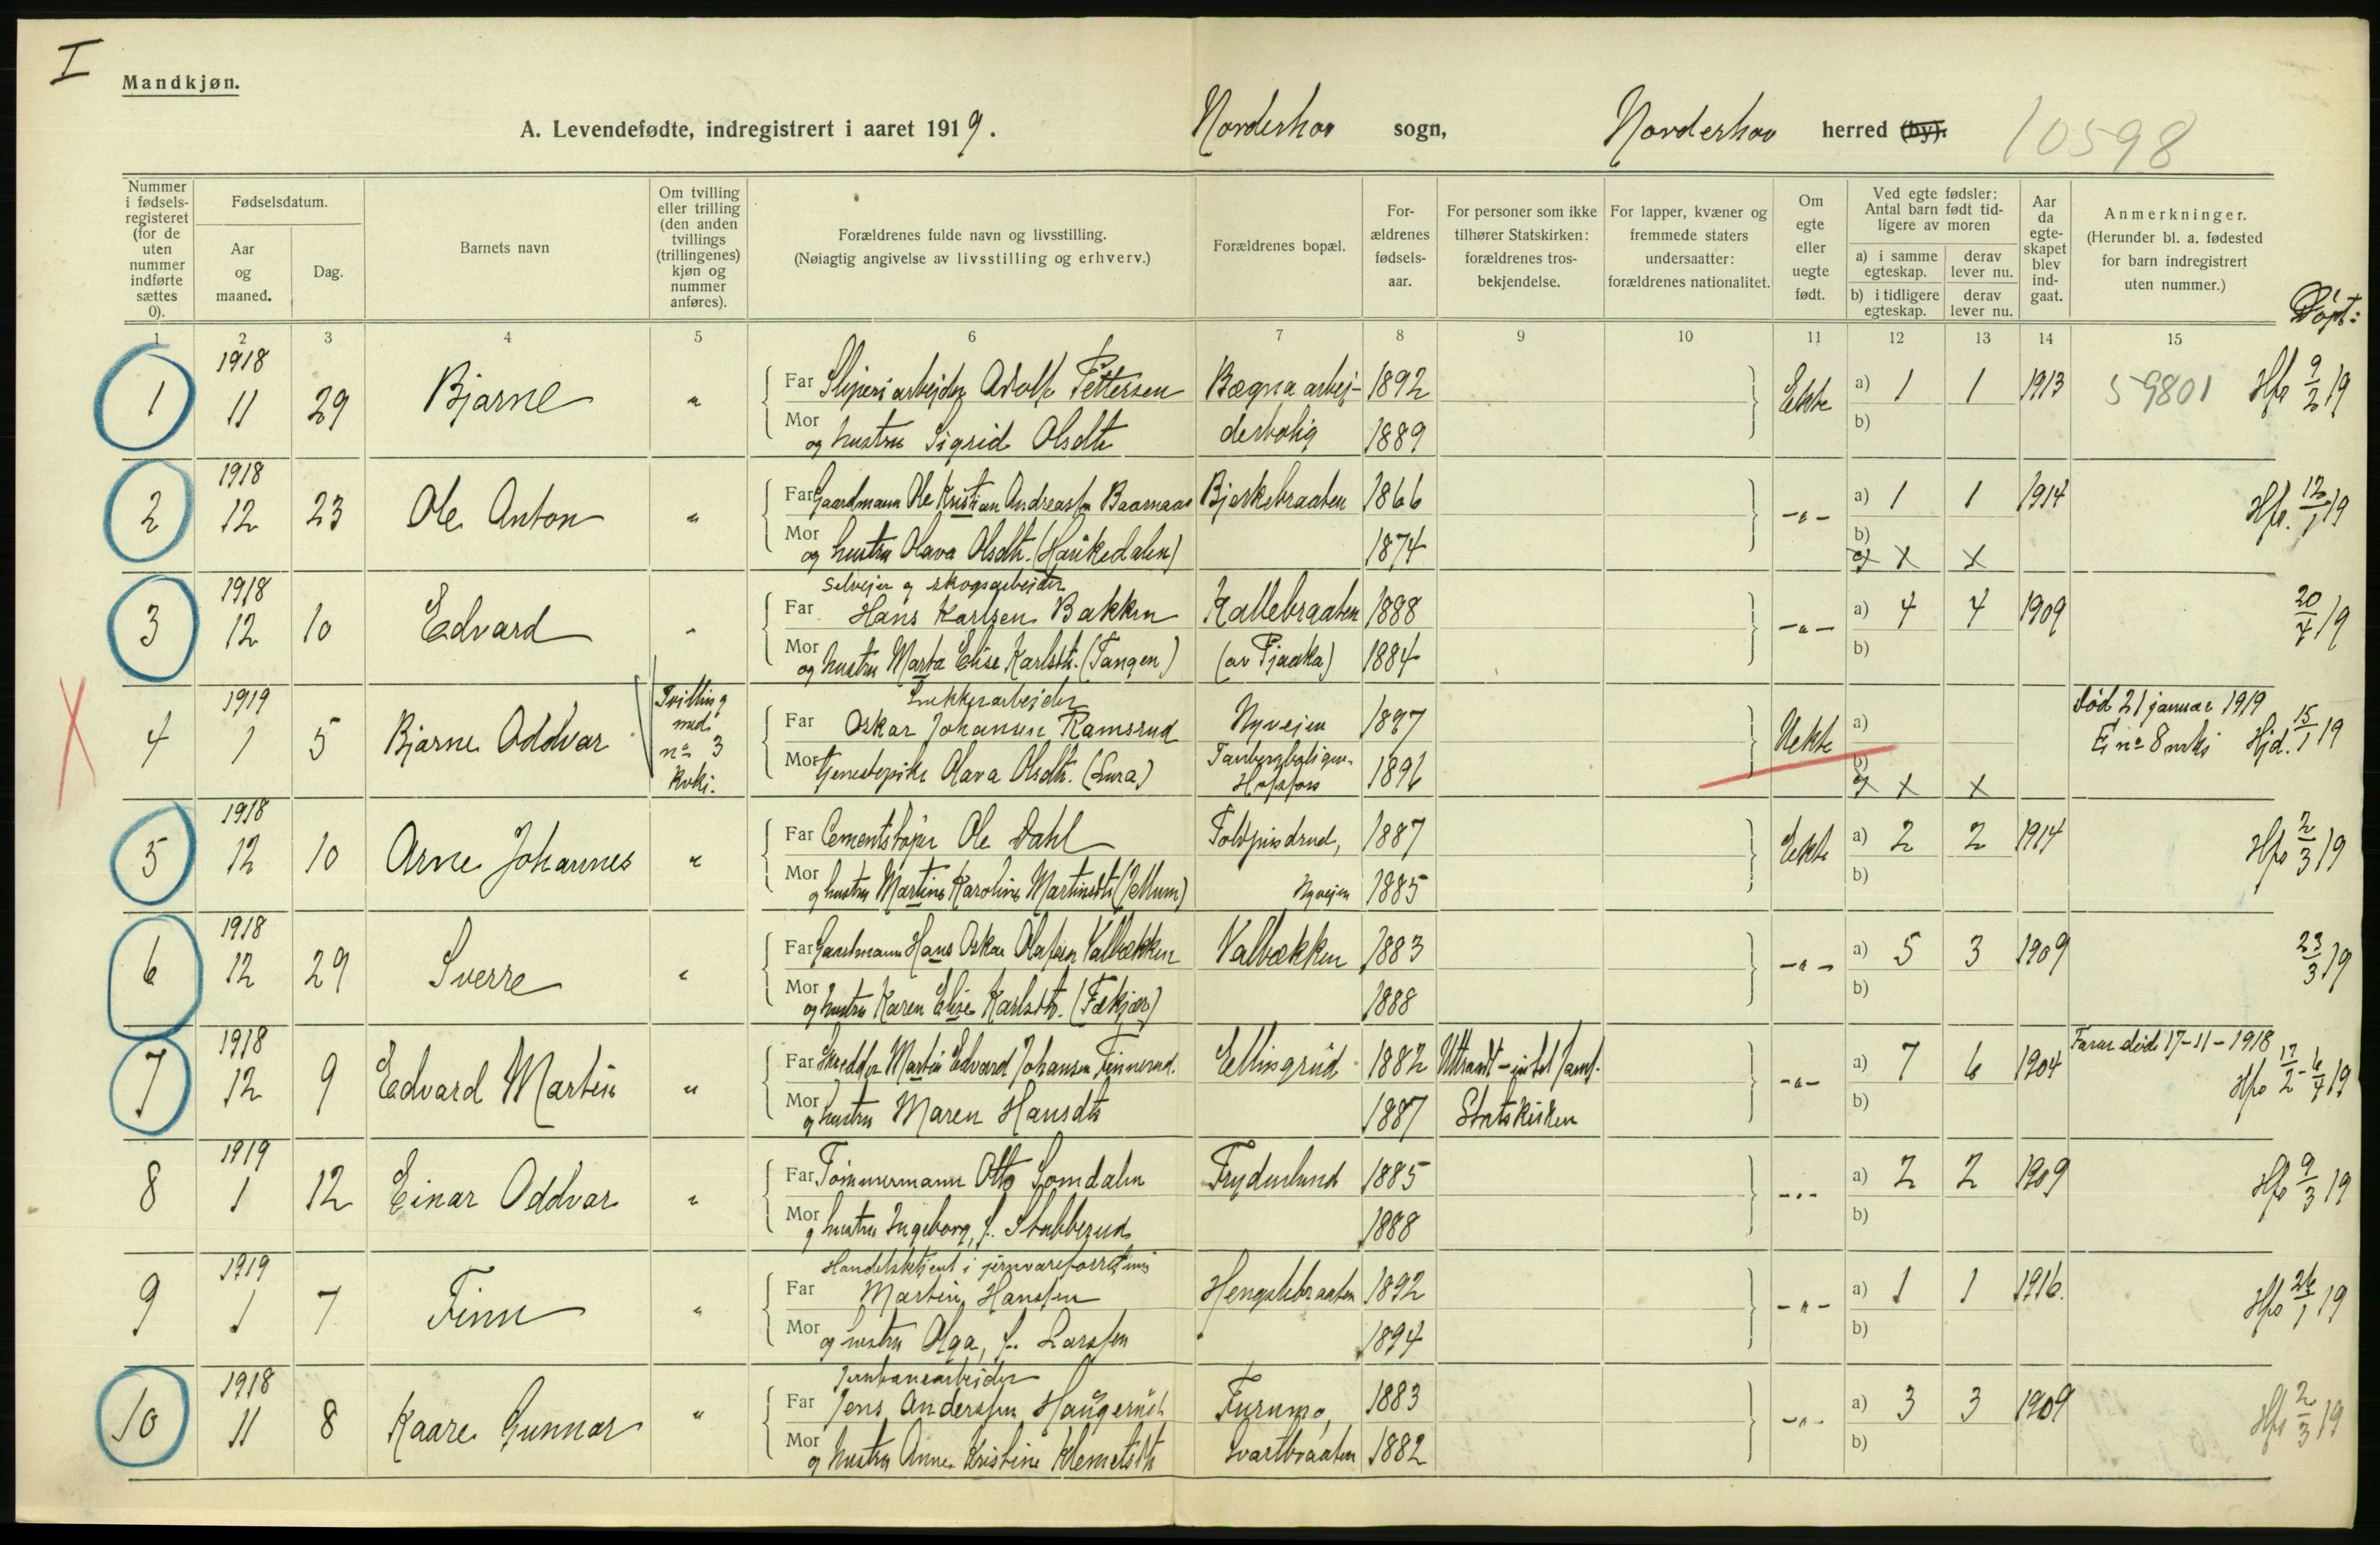 I
Mandkjøn.
A. Levendefødte, indregistrert i aaret 1919. Norderhov sogn, Norderhov herred (by). 10598
Nummer i fødselsregisteret (for de uten nummer indførte sættes 0).
Fødselsdatum.
Aar og maaned.
Dag.
Barnets navn
Om tvilling eller trilling (den anden tvillings (trillingenes) kjøn og nummer anføres).
Forældrenes fulde navn og livsstilling.
(Nøiagtig angivelse av livsstilling og erhverv.)
Forældrenes bopæl.
Forældrenes fødselsaar.
For personer som ikke tilhører Statskirken: forældrenes trosbekjendelse.
For lapper, kvæner og fremmede staters undersaatter: forældrenes nationalitet.
Om egte eller uegte født.
Ved egte fødsler: Antal barn født tidligere av moren
a) i samme egteskap. derav lever nu.
b) i tidligere egteskap. derav lever nu.
Aar da egteskapet blev indgaat.
Anmerkninger.
(Herunder bl. a. fødested for barn indregistrert uten nummer.)
Døpt:
1 2 3 4 5 6 7 8 9 10 11 12 13 14 15
1 1918 11 29 Bjarne " Far Sliperiarbejder Adolf Pettersen Bægna arbej- 1892 Ekte a) 1 1 1913 59801 Hfo 9/2 19
Mor og hustru Sigrid Olsdtr derbolig 1889 b)
2 1918 12 23 Ole Anton " Far Gaardmann Ole Kristian Andreassen Baarnaas Bjerkebraaten 1866 -"- a) 1 1 1914 Hfo. 12/1 19
Mor og hustru Olava Olsdtr. (Haukedalen) 1874 b) x x
3 1918 12 10 Edvard " Selvejer og skogsarbejder
Far Hans Karlsen Bakken Kallebraaten 1888 -"- a) 4 4 1909 20/4 19
Mor og hustru Marta Elise Karlsdtr. (Tangen) (av Tjaaka) 1884 b)
4 1919 1 5 Bjarne Oddvar Tvilling med no 3 kvkj.
Far Oskar Johansen Ramsrud Nyvejen 1897 Uekte a) Død 21 januar 1919
Ej no 8 mkj Hjd. 15/1 19
Mor Tjenestepike Olava Olsdtr. (Lura) Hofsfoss 1896 b) x x
5 1918 12 10 Arne Johannes " Far Cementstøper Ole Dahl 1887 Ekte a) 2 2 1914 Hfo 2/3 19
Mor og hustru Martine Karoline Martinsdtr (Jellum) Nyvejen 1885 b)
6 1918 12 29 Sverre " Far Gaardmann Hans Oskar Olafsen Valbækken Valbækken 1883 -"- a) 5 3 1909 23/3 19
Mor og hustru Karen Elise Karlsdtr. (Fækjær) 1888 b)
7 1918 12 9 Edvard Martin " Far Skredder Martin Edvard Johansen Finnerud. Ellingrud 1882 Uttraadt - intet samf. -"- a) 7 6 1904 Faren døde 17-11-1918
Hfo 17/2 - 6/4 19
Mor og hustru Maren Hansdtr 1887 Statskirken b)
8 1919 1 12 Einar Oddvar " Far Tømmermann Otto Somdalen Frydenlund 1885 -"- a) 2 2 1909 Hfo 9/3 19
Mor og hustru Ingeborg, f. Stubberud 1888 b)
9 1919 1 7 Finn " Handelsbetjent i jernvareforretning
Far Martin Hanssen Hengslebraaten 1892 -"- a) 1 1 1916. Hfo 26/1 19
Mor og hustru Olga, f. Larssen 1894 b)
10 1918 11 8 Kaare Gunnar " Jernbanearbeider
Far Jens Anderssen Haugerud Furumo, 1883 -"- a) 3 3 1909 Hfo 2/3 19
Mor og hustru Anne Kristine Klemetsdtr Svartbraaten 1882 b)